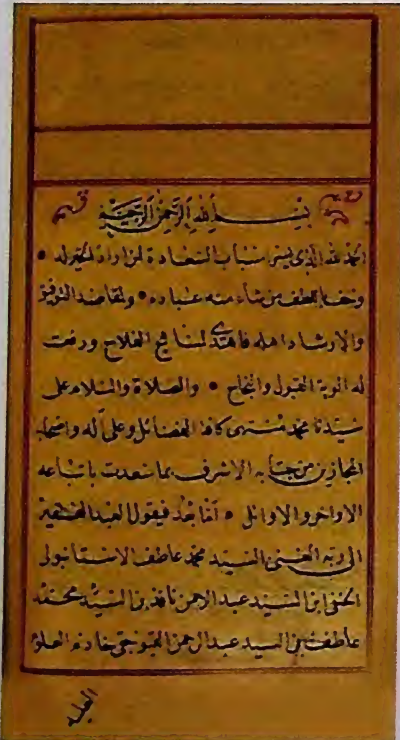 بسم الله الرحمن الرحيم
الحمد لله الذي يسر اسباب السعادة لمن اراد الخير له
وخص بلطفه من شاء منه عباده ولمقاصد التوفيق
والارشاد اهله فاهتدى لمناهج الفلاح ورفعت
له الوية القبول والنجاح والصلاة والسلام على
سيدنا محمد منتهى كافة الفضائل وعلى آله واصحابه
المجازين من جنابه الاشرف بما سعدت باتباعه
الاواخر والاوائل اما بعد فيقول العبد الفقير
الى ربه الغنى السيد محمد عاطف الاستانبولى
الحنفى ابن السيد عبد الرحمن نافذ بن السيد محمد
عاطف بن السيد عبد الرحمن القبوجى خادم العلم